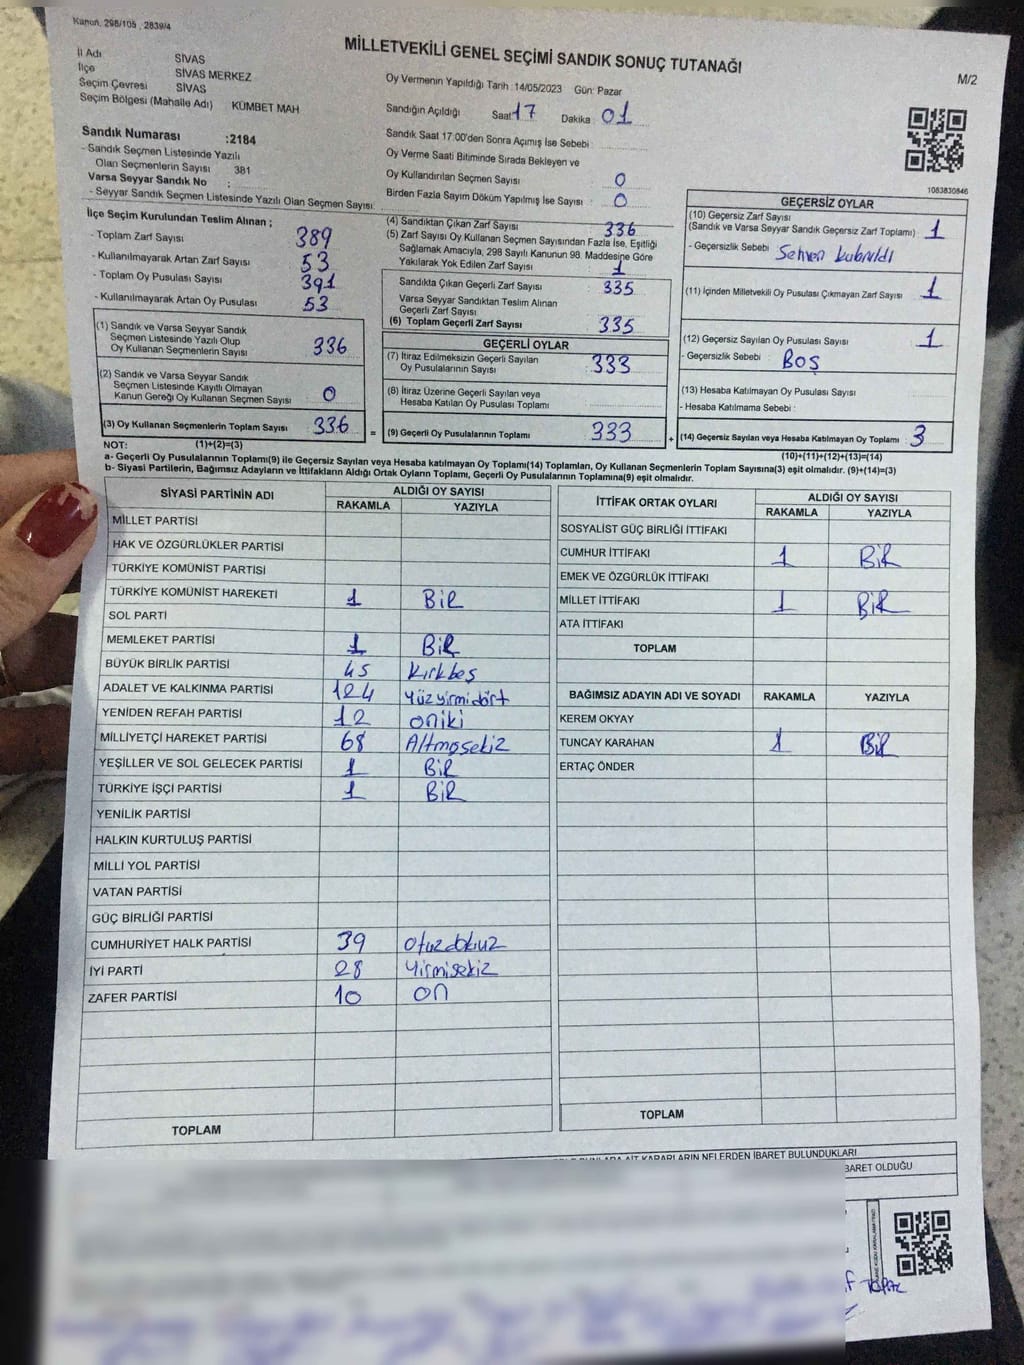 Kanun, 298/105 , 2839/4
MİLLETVEKİLİ GENEL SEÇİMİ SANDIK SONUÇ TUTANAĞI
M/2
İl Adı SİVAS
İlçe SİVAS MERKEZ
Seçim Çevresi SİVAS
Seçim Bölgesi (Mahalle Adı) KÜMBET MAH
Sandık Numarası :2184
- Sandık Seçmen Listesinde Yazılı
Olan Seçmenlerin Sayısı 381
Varsa Seyyar Sandık No :
- Seyyar Sandık Seçmen Listesinde Yazılı Olan Seçmen Sayısı:
Oy Vermenin Yapıldığı Tarih :14/05/2023 Gün: Pazar
Sandığın Açıldığı Saat 17 Dakika 01
Sandık Saat 17:00'den Sonra Açımış İse Sebebi :
Oy Verme Saati Bitiminde Sırada Bekleyen ve
Oy Kullandırılan Seçmen Sayısı : 0
Birden Fazla Sayım Döküm Yapılmış İse Sayısı : 0
1083830846
İlçe Seçim Kurulundan Teslim Alınan ;
- Toplam Zarf Sayısı 389
- Kullanılmayarak Artan Zarf Sayısı 53
- Toplam Oy Pusulası Sayısı 391
- Kullanılmayarak Artan Oy Pusulası 53
(1) Sandık ve Varsa Seyyar Sandık
Seçmen Listesinde Yazılı Olup
Oy Kullanan Seçmenlerin Sayısı 336
(2) Sandık ve Varsa Seyyar Sandık
Seçmen Listesinde Kayıtlı Olmayan
Kanun Gereği Oy Kullanan Seçmen Sayısı 0
(3) Oy Kullanan Seçmenlerin Toplam Sayısı 336 =
(4) Sandıktan Çıkan Zarf Sayısı : 336
(5) Zarf Sayısı Oy Kullanan Seçmen Sayısından Fazla İse, Eşitliği
Sağlamak Amacıyla, 298 Sayılı Kanunun 98. Maddesine Göre
Yakılarak Yok Edilen Zarf Sayısı : 1
Sandıkta Çıkan Geçerli Zarf Sayısı : 335
Varsa Seyyar Sandıktan Teslim Alınan
Geçerli Zarf Sayısı :
(6) Toplam Geçerli Zarf Sayısı : 335
GEÇERLİ OYLAR
(7) İtiraz Edilmeksizin Geçerli Sayılan
Oy Pusulalarının Sayısı : 333
(8) İtiraz Üzerine Geçerli Sayılan veya
Hesaba Katılan Oy Pusulası Toplamı :
(9) Geçerli Oy Pusulalarının Toplamı : 333 +
GEÇERSİZ OYLAR
(10) Geçersiz Zarf Sayısı
(Sandık ve Varsa Seyyar Sandık Geçersiz Zarf Toplamı) : 1
- Geçersizlik Sebebi :
(11) İçinden Milletvekili Oy Pusulası Çıkmayan Zarf Sayısı : 1
(12) Geçersiz Sayılan Oy Pusulası Sayısı : 1
- Geçersizlik Sebebi : BOŞ
(13) Hesaba Katılmayan Oy Pusulası Sayısı :
- Hesaba Katılmama Sebebi :
(14) Geçersiz Sayılan veya Hesaba Katılmayan Oy Toplamı : 3
NOT: (1)+(2)=(3) (10)+(11)+(12)+(13)=(14)
a- Geçerli Oy Pusulalarının Toplamı(9) ile Geçersiz Sayılan veya Hesaba katılmayan Oy Toplamı(14) Toplamları, Oy Kullanan Seçmenlerin Toplam Sayısına(3) eşit olmalıdır. (9)+(14)=(3)
b- Siyasi Partilerin, Bağımsız Adayların ve İttifakların Aldığı Ortak Oyların Toplamı, Geçerli Oy Pusulalarının Toplamına(9) eşit olmalıdır.
SİYASİ PARTİNİN ADI ALDIĞI OY SAYISI
RAKAMLA YAZIYLA
MİLLET PARTİSİ
HAK VE ÖZGÜRLÜKLER PARTİSİ
TÜRKİYE KOMÜNİST PARTİSİ
TÜRKİYE KOMÜNİST HAREKETİ 1 BİR
SOL PARTİ
MEMLEKET PARTİSİ 1 BİR
BÜYÜK BİRLİK PARTİSİ 45 Kırkbeş
ADALET VE KALKINMA PARTİSİ 124 Yüzyirmidört
YENİDEN REFAH PARTİSİ 12 oniki
MİLLİYETÇİ HAREKET PARTİSİ 68 Altmışsekiz
YEŞİLLER VE SOL GELECEK PARTİSİ 1 BİR
TÜRKİYE İŞÇİ PARTİSİ 1 BİR
YENİLİK PARTİSİ
HALKIN KURTULUŞ PARTİSİ
MİLLİ YOL PARTİSİ
VATAN PARTİSİ
GÜÇ BİRLİĞİ PARTİSİ
CUMHURİYET HALK PARTİSİ 39 Otuzdokuz
İYİ PARTİ 28 Yirmisekiz
ZAFER PARTİSİ 10 ON
TOPLAM
İTTİFAK ORTAK OYLARI ALDIĞI OY SAYISI
RAKAMLA YAZIYLA
SOSYALİST GÜÇ BİRLİĞİ İTTİFAKI
CUMHUR İTTİFAKI 1 BİR
EMEK VE ÖZGÜRLÜK İTTİFAKI
MİLLET İTTİFAKI 1 BİR
ATA İTTİFAKI
TOPLAM
BAĞIMSIZ ADAYIN ADI VE SOYADI RAKAMLA YAZIYLA
KEREM OKYAY
TUNCAY KARAHAN 1 BİR
ERTAÇ ÖNDER
TOPLAM
AİT KARARLARIN NELERDEN İBARET BULUNDUKLARI
BARET OLDUĞU